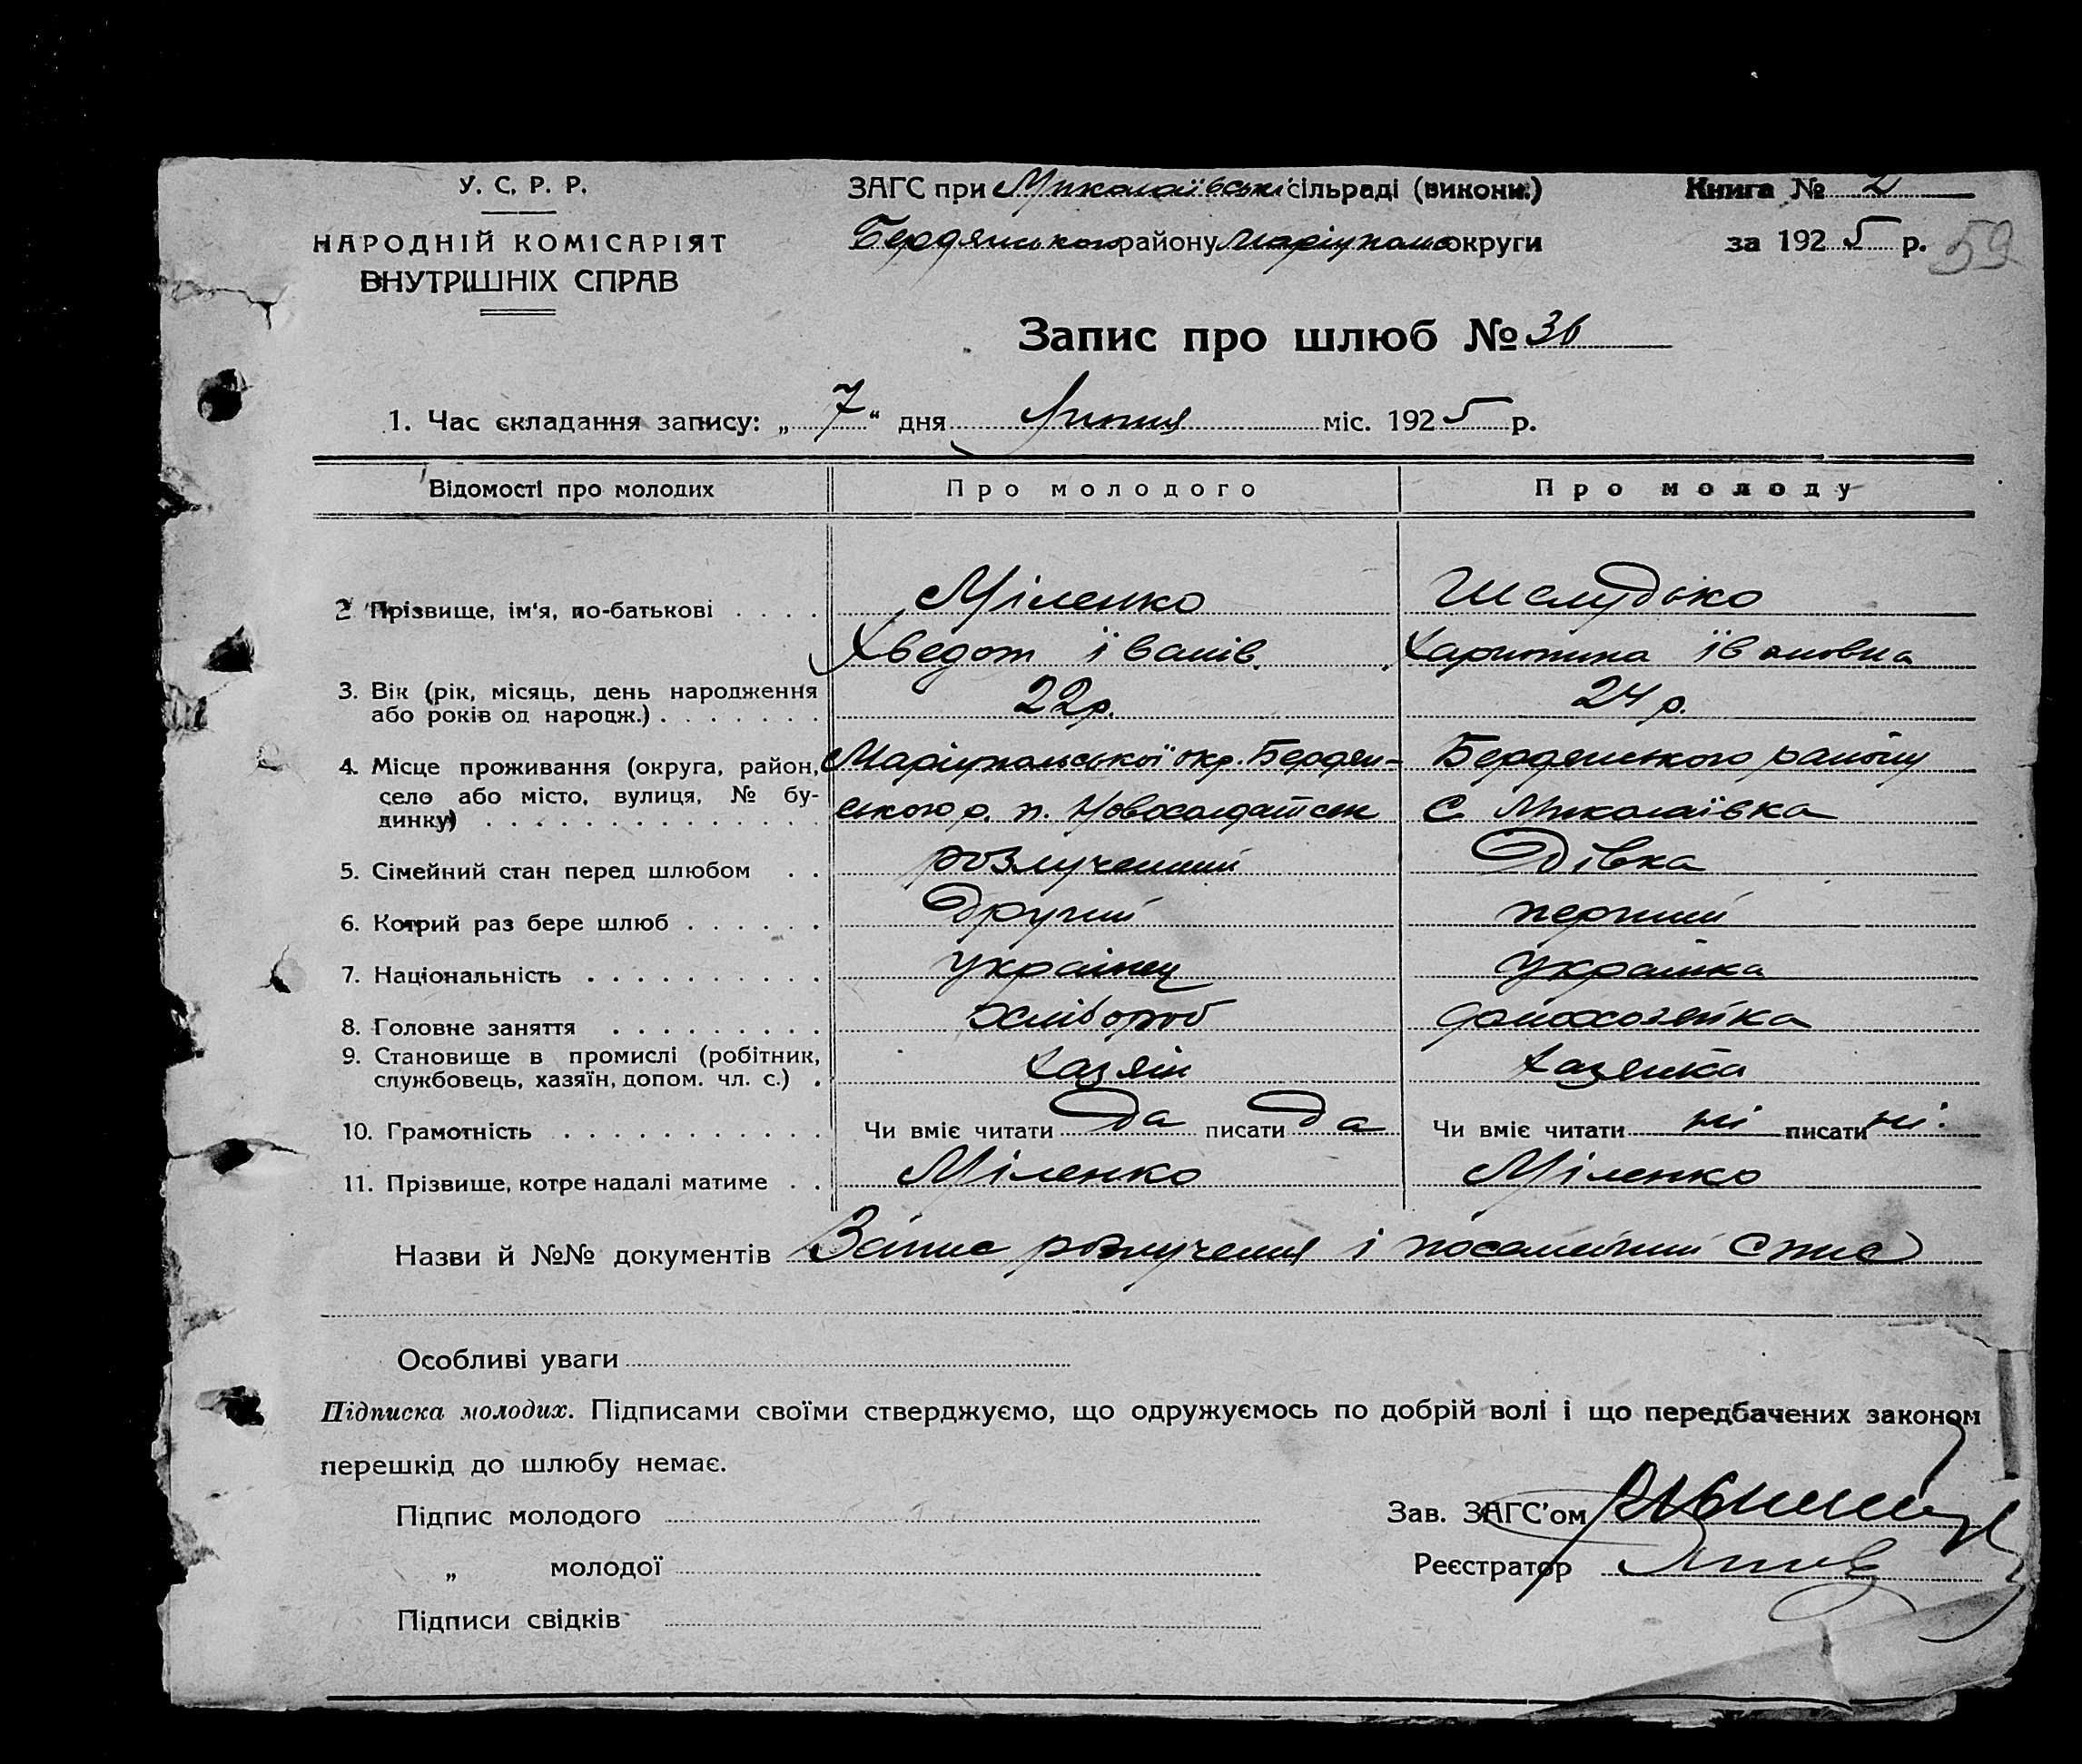 У. С. Р. Р.
НАРОДНІЙ КОМІСАРІЯТ
ВНУТРІШНІХ СПРАВ
ЗАГС при Миколаївські сільраді (викони.)
Бердянського району Маріупольс округи
Книга № 2
за 1925 р. 59
Запис про шлюб № 36
1. Час складання запису: „7“ дня Липня міс. 1925 р.
Відомості про молодих Про молодого Про молоду
2 Прізвище, ім'я, по-батькові . . . . Міленко Шелудько
Хведот Іванів. Харитина Івановна
3. Вік (рік, місяць, день народження
або років од народж.) . . . . . . . 22р. 24 р.
4. Місце проживання (округа, район, Маріупольської окр. Бердян- Бердянського району
село або місто, вулиця, № бу- ського р. п. Новосолдатськ С. Миколаївка
динку) . . . . . . . . . . . . . .
5. Сімейний стан перед шлюбом . . розлучений Дівка
6. Котрий раз бере шлюб . . . . . . Другий перший
7. Національність . . . . . . . . . . українец українка
8. Головне заняття . . . . . . . . . хлібороб домохозяйка
9. Становище в промислі (робітник,
службовець, хазяїн, допом. чл. с.) . Хазяїн Хазяйка
10. Грамотність . . . . . . . . . . . Чи вміє читати Да писати Да Чи вміє читати ні писати ні.
11. Прізвище, котре надалі матиме . . Міленко Міленко
Назви й №№ документів Запис розлучення і посемейний Спис
Особливі уваги
Підписка молодих. Підписами своїми стверджуємо, що одружуємось по добрій волі і що передбачених законом
перешкід до шлюбу немає.
Підпис молодого
Зав. ЗАГС'ом
„ молодої
Реєстратор
Підписи свідків